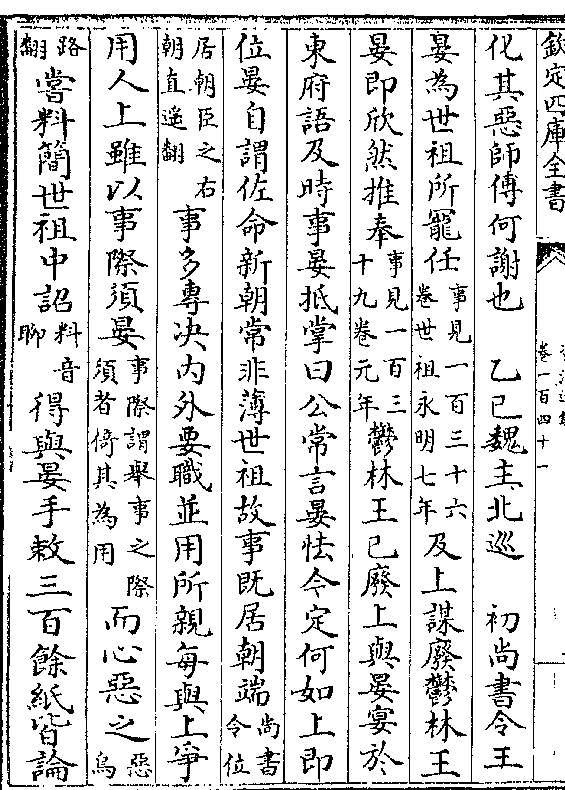 欽定四庫全書
卷一百四十一
化其惡師傅何謝也　乙巳魏主北巡　初尚書令王
晏為世祖所寵任事見一百三十六卷世祖永明七年及上謀廢鬱林王
晏即欣然推奉事見一百三十九卷元年鬱林王已廢上與晏宴於
東府語及時事晏抵掌曰公常言晏怯今定何如上即
位晏自謂佐命新朝常非薄世祖故事既居朝端尚書令位
居朝臣之右朝直遥翻事多專决内外要職並用所親每與上爭
用人上雖以事際須晏事際謂舉事之際須者倚其為用而心惡之惡烏
路翻嘗料簡世祖中詔料音聊得與晏手敕三百餘紙皆論